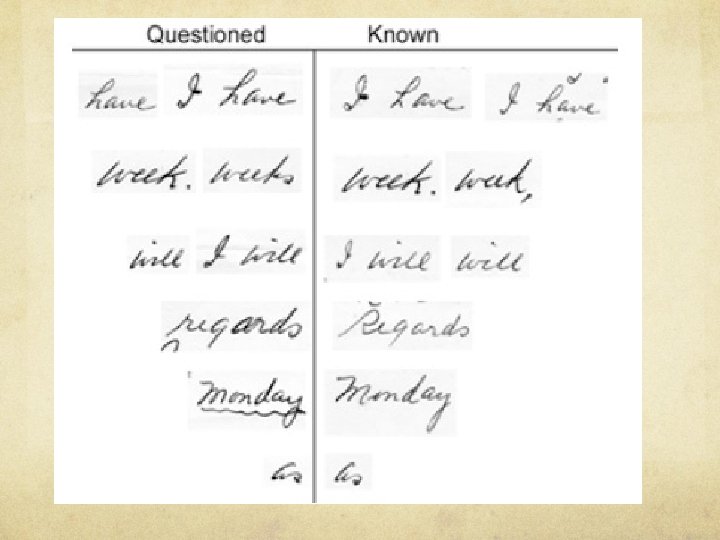 Questioned Known
have I have I have I have
week. weeks week. week,
will I will I will will
regards Regards
Monday Monday
as as